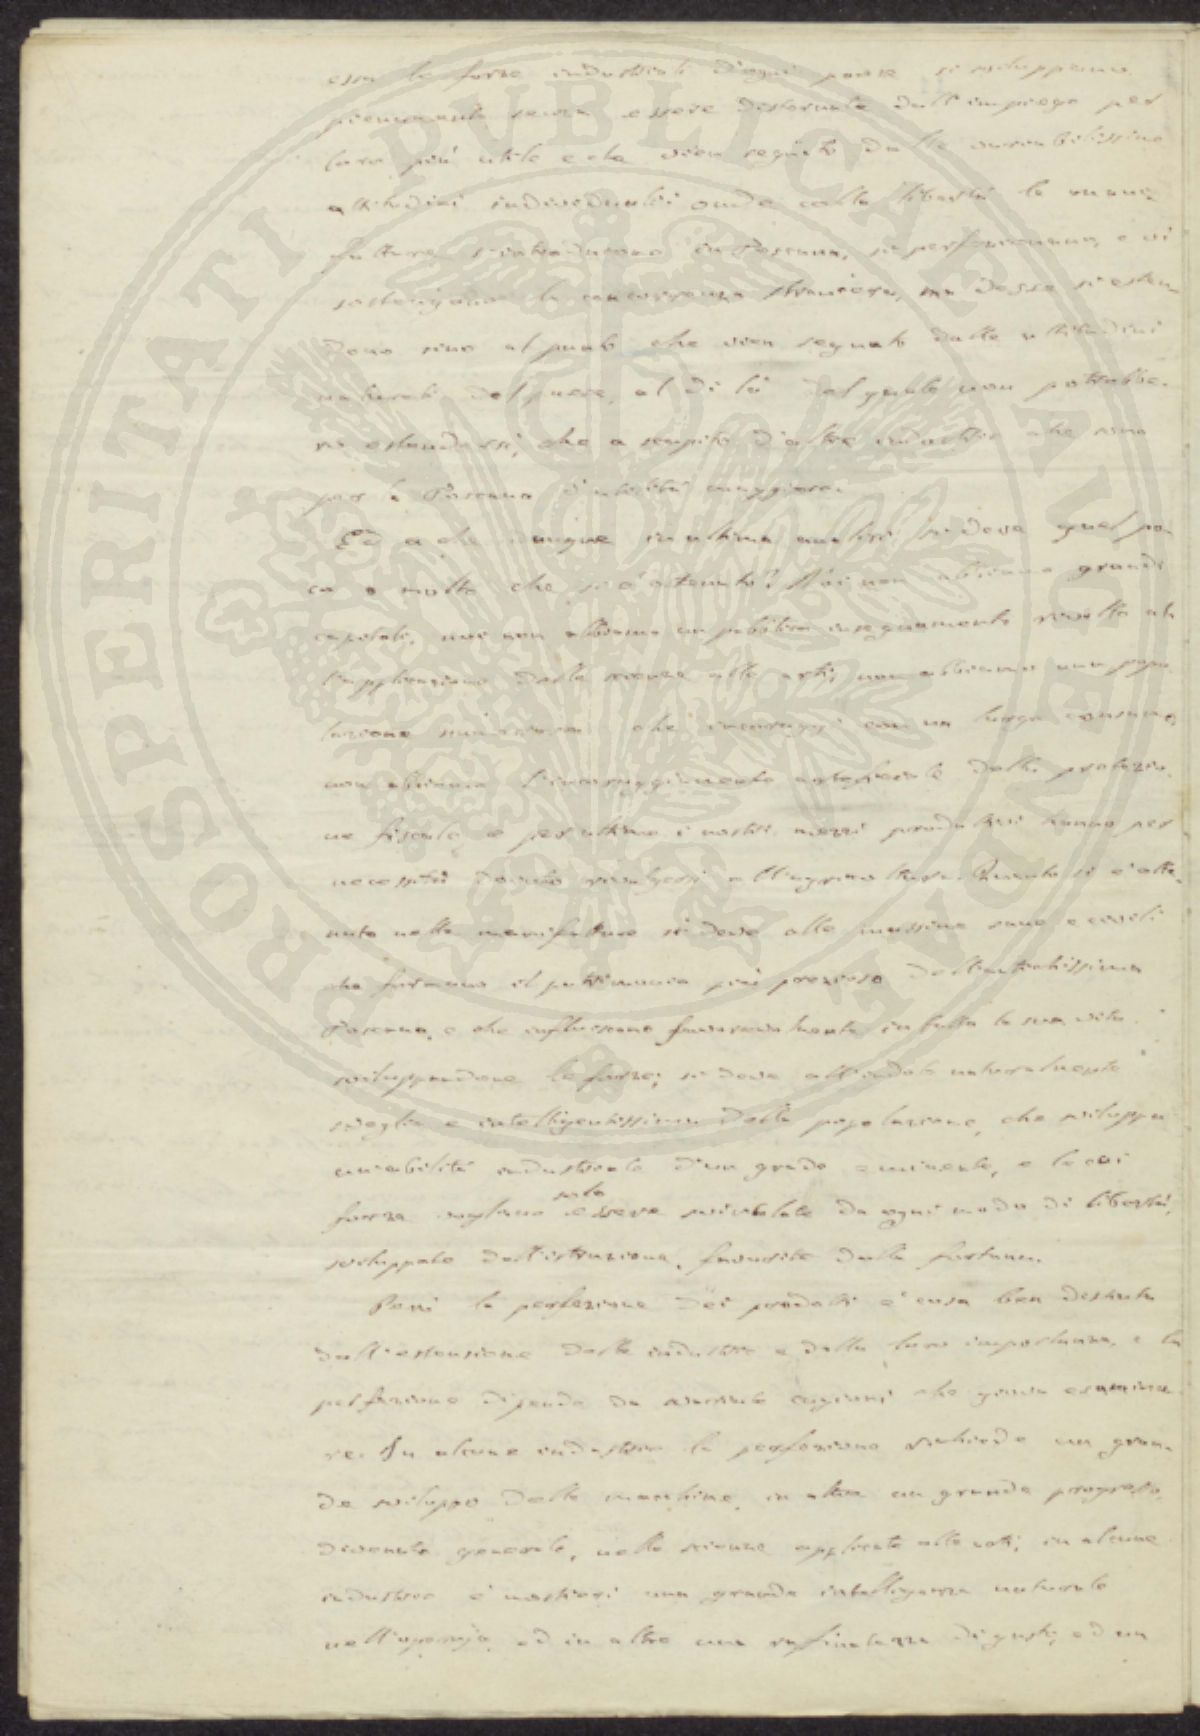 essa le forze industriali d'ogni paese si sviluppano
pienamente senza essere distornate dall'impiego per
loro più utile e che vien segnato dalle variabilissime
attitudini individuali onde colla libertà le mani-
fatture s'introducono in Toscana, si perfezionano, e vi
sostengono la concorrenza straniera, ma desse si esten-
dono sino al punto che vien segnato dalle attitudini
naturali del paese, al di là del quale non potrebbe-
ro estendersi, che a scapito d'altre industrie che sono
per la Toscana d'utilità maggiore.
Ed a che dunque in ultima analisi si deve quel po-
co o molto che si è ottenuto? Noi non abbiamo grandi
capitali, noi non abbiamo un pubblico insegnamento rivolto al-
l'applicazione delle scienze alle arti, non abbiamo una popo-
lazione che incoraggi con un largo consumo,
non abbiamo l'incoraggiamento artificiale della protezio-
ne fiscale, e per ultimo i nostri mezzi produttivi hanno per
necessità dovuto rivolgersi all'agricoltura. Quanto si è otte-
nuto nelle manifatture si deve alle massime sane e civili
che formano il patrimonio più prezioso dell'antichissima
Toscana, e che influiscono favorevolmente in tutta la sua vita
sviluppandone le forze; si deve all'indole naturalmente
sveglia e intelligentissima della popolazione, che sviluppa
un'abilità industriale d'un grado eminente, e le cui
solo
forze vogliono essere svincolate da ogni modo di libertà,
sviluppate dall'istruzione, favorite dalla fortuna.
Però la perfezione dei prodotti è cosa ben distinta
dall'estensione delle industrie e dalla loro importanza, e la
perfezione dipende da svariate cagioni che giova esamina-
re. In alcune industrie la perfezione richiede un gran-
de sviluppo delle macchine, in altre un grande progresso,
divenuto generale, nelle scienze applicate alle arti; in alcune
industrie è mestieri una grande intelligenza naturale
nell'operajo, ed in altre una raffinatezza di gusto, ed un